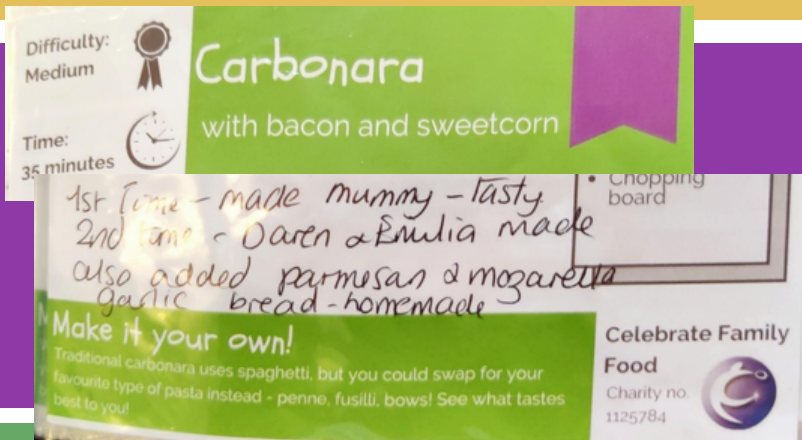 Difficulty:
Medium
Carbonara
with bacon and sweetcorn
Time:
35 minutes
• Chopping
board
1st Time - made mummy - Tasty.
2nd time - Daren & Emilia made
also added parmesan & mozarella
garlic bread - homemade
Make it your own!
Traditional carbonara uses spaghetti, but you could swap for your
favourite type of pasta instead - penne, fusilli, bows! See what tastes
best to you!
Celebrate Family
Food
Charity no.
1125784